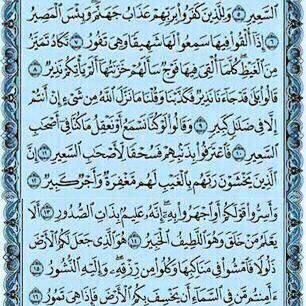 ٱلسَّعِيرِ ۝٥ وَلِلَّذِينَ كَفَرُوا۟ بِرَبِّهِمْ عَذَابُ جَهَنَّمَ وَبِئْسَ ٱلْمَصِيرُ
۝٦ إِذَآ أُلْقُوا۟ فِيهَا سَمِعُوا۟ لَهَا شَهِيقًا وَهِىَ تَفُورُ ۝٧ تَكَادُ تَمَيَّزُ
مِنَ ٱلْغَيْظِ كُلَّمَآ أُلْقِىَ فِيهَا فَوْجٌ سَأَلَهُمْ خَزَنَتُهَآ أَلَمْ يَأْتِكُمْ نَذِيرٌ ۝٨
قَالُوا۟ بَلَىٰ قَدْ جَآءَنَا نَذِيرٌ فَكَذَّبْنَا وَقُلْنَا مَا نَزَّلَ ٱللَّهُ مِن شَىْءٍ إِنْ أَنتُمْ
إِلَّا فِى ضَلَٰلٍ كَبِيرٍ ۝٩ وَقَالُوا۟ لَوْ كُنَّا نَسْمَعُ أَوْ نَعْقِلُ مَا كُنَّا فِىٓ أَصْحَٰبِ
ٱلسَّعِيرِ ۝١٠ فَٱعْتَرَفُوا۟ بِذَنۢبِهِمْ فَسُحْقًا لِّأَصْحَٰبِ ٱلسَّعِيرِ ۝١١ إِنَّ
ٱلَّذِينَ يَخْشَوْنَ رَبَّهُم بِٱلْغَيْبِ لَهُم مَّغْفِرَةٌ وَأَجْرٌ كَبِيرٌ ۝١٢
وَأَسِرُّوا۟ قَوْلَكُمْ أَوِ ٱجْهَرُوا۟ بِهِۦٓ إِنَّهُۥ عَلِيمٌۢ بِذَاتِ ٱلصُّدُورِ ۝١٣ أَلَا
يَعْلَمُ مَنْ خَلَقَ وَهُوَ ٱللَّطِيفُ ٱلْخَبِيرُ ۝١٤ هُوَ ٱلَّذِى جَعَلَ لَكُمُ ٱلْأَرْضَ
ذَلُولًا فَٱمْشُوا۟ فِى مَنَاكِبِهَا وَكُلُوا۟ مِن رِّزْقِهِۦ وَإِلَيْهِ ٱلنُّشُورُ ۝١٥
ءَأَمِنتُم مَّن فِى ٱلسَّمَآءِ أَن يَخْسِفَ بِكُمُ ٱلْأَرْضَ فَإِذَا هِىَ تَمُورُ ۝١٦